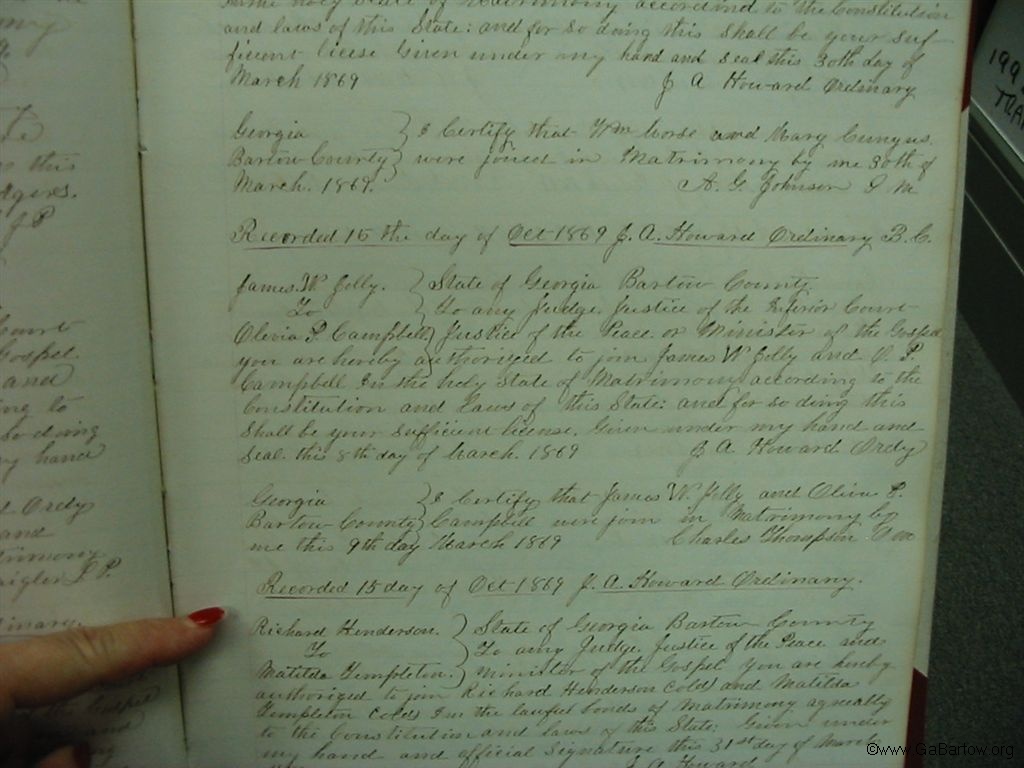 same holy State of Matrimony according to the Constitution
and laws of this State: and for so doing this Shall be your suf
ficient licese Given under my hand and seal this 30th day of
March 1869 J A Howard Ordinary
Georgia } I Certify that Wm Corse and Mary Cunyus
Bartow County } were joined in Matrimony by me 30th of
March. 1869. A. G. Johnson J M
Recorded 15 the day of Oct 1869 J. A. Howard Ordinary B. C.
James. W Jolly. } State of Georgia Bartow County.
To } To any Judge. Justice of the Inferior Court
Olivia P. Campbell } Justice of the Peace. or Minister of the Gospel
you are hereby authorized to join James W Jolly and O. P.
Campbell In the holy State of Matrimony according to the
Constitution and Laws of this State: and for so doing this
Shall be your sufficient license. Given under my hand and
seal. this 8th day of March. 1869 J A Howard Ordy
Georgia } I Certify that James W. Jolly and Oliva P.
Bartow County } Campbell were join in Matrimony by
me this 9th day March 1869 Charles Thompson
Recorded 15 day of Oct 1869 J. A. Howard Ordinary.
Richard Henderson. } State of Georgia Bartow County
To } To any Judge. Justice of the Peace and
Matilda Templeton. } Minister of the Gospel You are hereby
authorized to join Richard Henderson Cold) and Matilda
Templeton Cold) In the lawful bonds of Matrimony agreeably
to the Constitution and laws of this State. Given under
my hand and official Signature this 31st day of March
J. A. Howard
this
J P
Court
Gospel.
and
ing to
so doing
my hand
Ordy
and
J. P.
199
©www.GaBartow.org